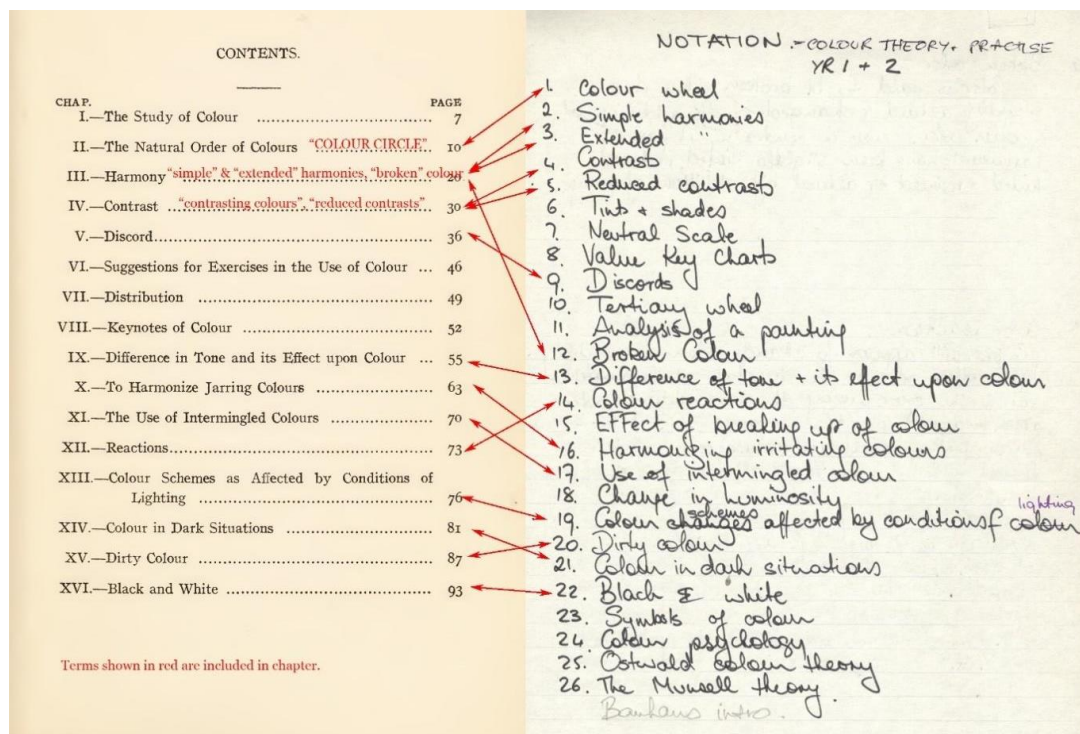 CONTENTS.
CHAP. PAGE
I.—The Study of Colour .................................. 7
II.—The Natural Order of Colours "COLOUR CIRCLE". 10
III.—Harmony "simple" & "extended" harmonies, "broken" colour 20
IV.—Contrast ..."contrasting colours", "reduced contrasts". 30
V.—Discord...................................................... 36
VI.—Suggestions for Exercises in the Use of Colour ... 46
VII.—Distribution ............................................. 49
VIII.—Keynotes of Colour .................................... 52
IX.—Difference in Tone and its Effect upon Colour ... 55
X.—To Harmonize Jarring Colours ...................... 63
XI.—The Use of Intermingled Colours .................. 70
XII.—Reactions................................................... 73
XIII.—Colour Schemes as Affected by Conditions of
Lighting ............................................. 76
XIV.—Colour in Dark Situations ............................ 81
XV.—Dirty Colour ............................................. 87
XVI.—Black and White ........................................ 93
Terms shown in red are included in chapter.
NOTATION :- COLOUR THEORY. PRACTISE
YR 1 + 2
1. Colour wheel
2. Simple harmonies
3. Extended "
4. Contrasts
5. Reduced contrasts
6. Tints + shades
7. Neutral Scale
8. Value Key Charts
9. Discords
10. Tertiary wheel
11. Analysis of a painting
12. Broken Colour
13. Difference of tone + its effect upon colour
14. Colour reactions
15. Effect of breaking up of colour
16. Harmonizing irritating colours
17. Use of intermingled colour
18. Change in luminosity
schemes lighting
19. Colour changes affected by conditions of colour
20. Dirty colour
21. Colour in dark situations
22. Black & white
23. Symbols of colour
24. Colour psychology
25. Ostwald colour theory
26. The Munsell theory.
Bauhaus intro.